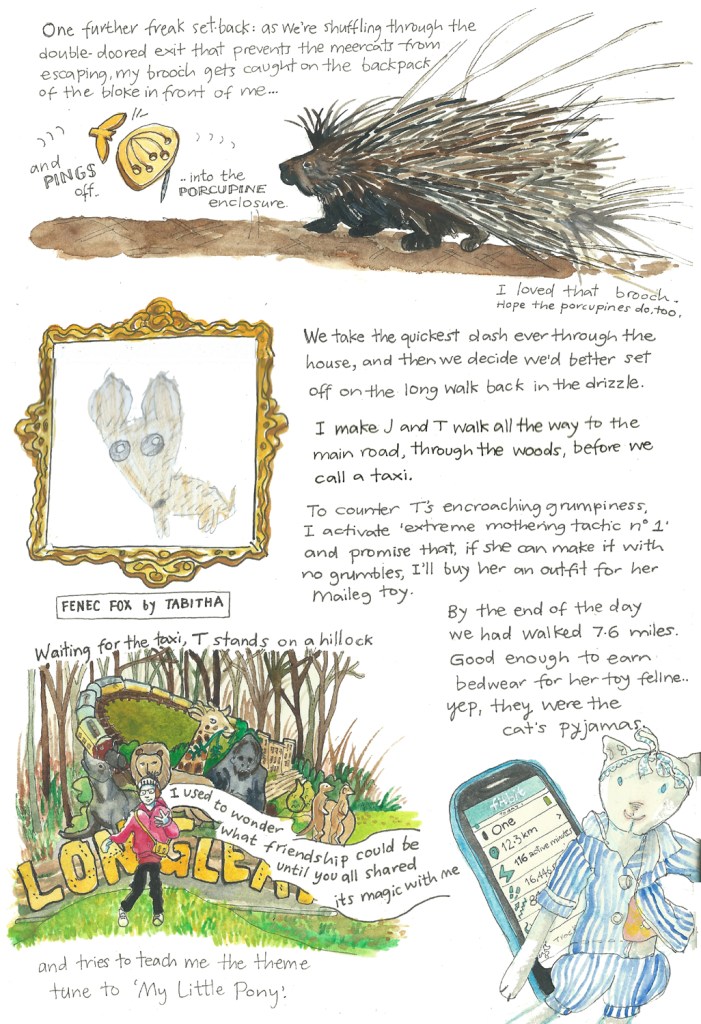 One further freak set-back: as we're shuffling through the
double-doored exit that prevents the meercats from
escaping, my brooch gets caught on the backpack
of the bloke in front of me...
and
PINGS
off..
..into the
PORCUPINE
enclosure.
I loved that brooch.
Hope the porcupines do, too.
We take the quickest dash ever through the
house, and then we decide we'd better set
off on the long walk back in the drizzle.
I make J and T walk all the way to the
main road, through the woods, before we
call a taxi.
To counter T's encroaching grumpiness,
I activate 'extreme mothering tactic nº 1'
and promise that, if she can make it with
no grumbles, I'll buy her an outfit for her
Maileg toy.
FENEC FOX by TABITHA
By the end of the day
we had walked 7.6 miles.
Good enough to earn
bedwear for her toy feline..
yep, they were the
cat's pyjamas.
Waiting for the taxi, T stands on a hillock
I used to wonder
what friendship could be
until you all shared
its magic with me
LONGLEA
fitbit
One
12.3 km
116 active minutes
and tries to teach me the theme
tune to 'My Little Pony'.